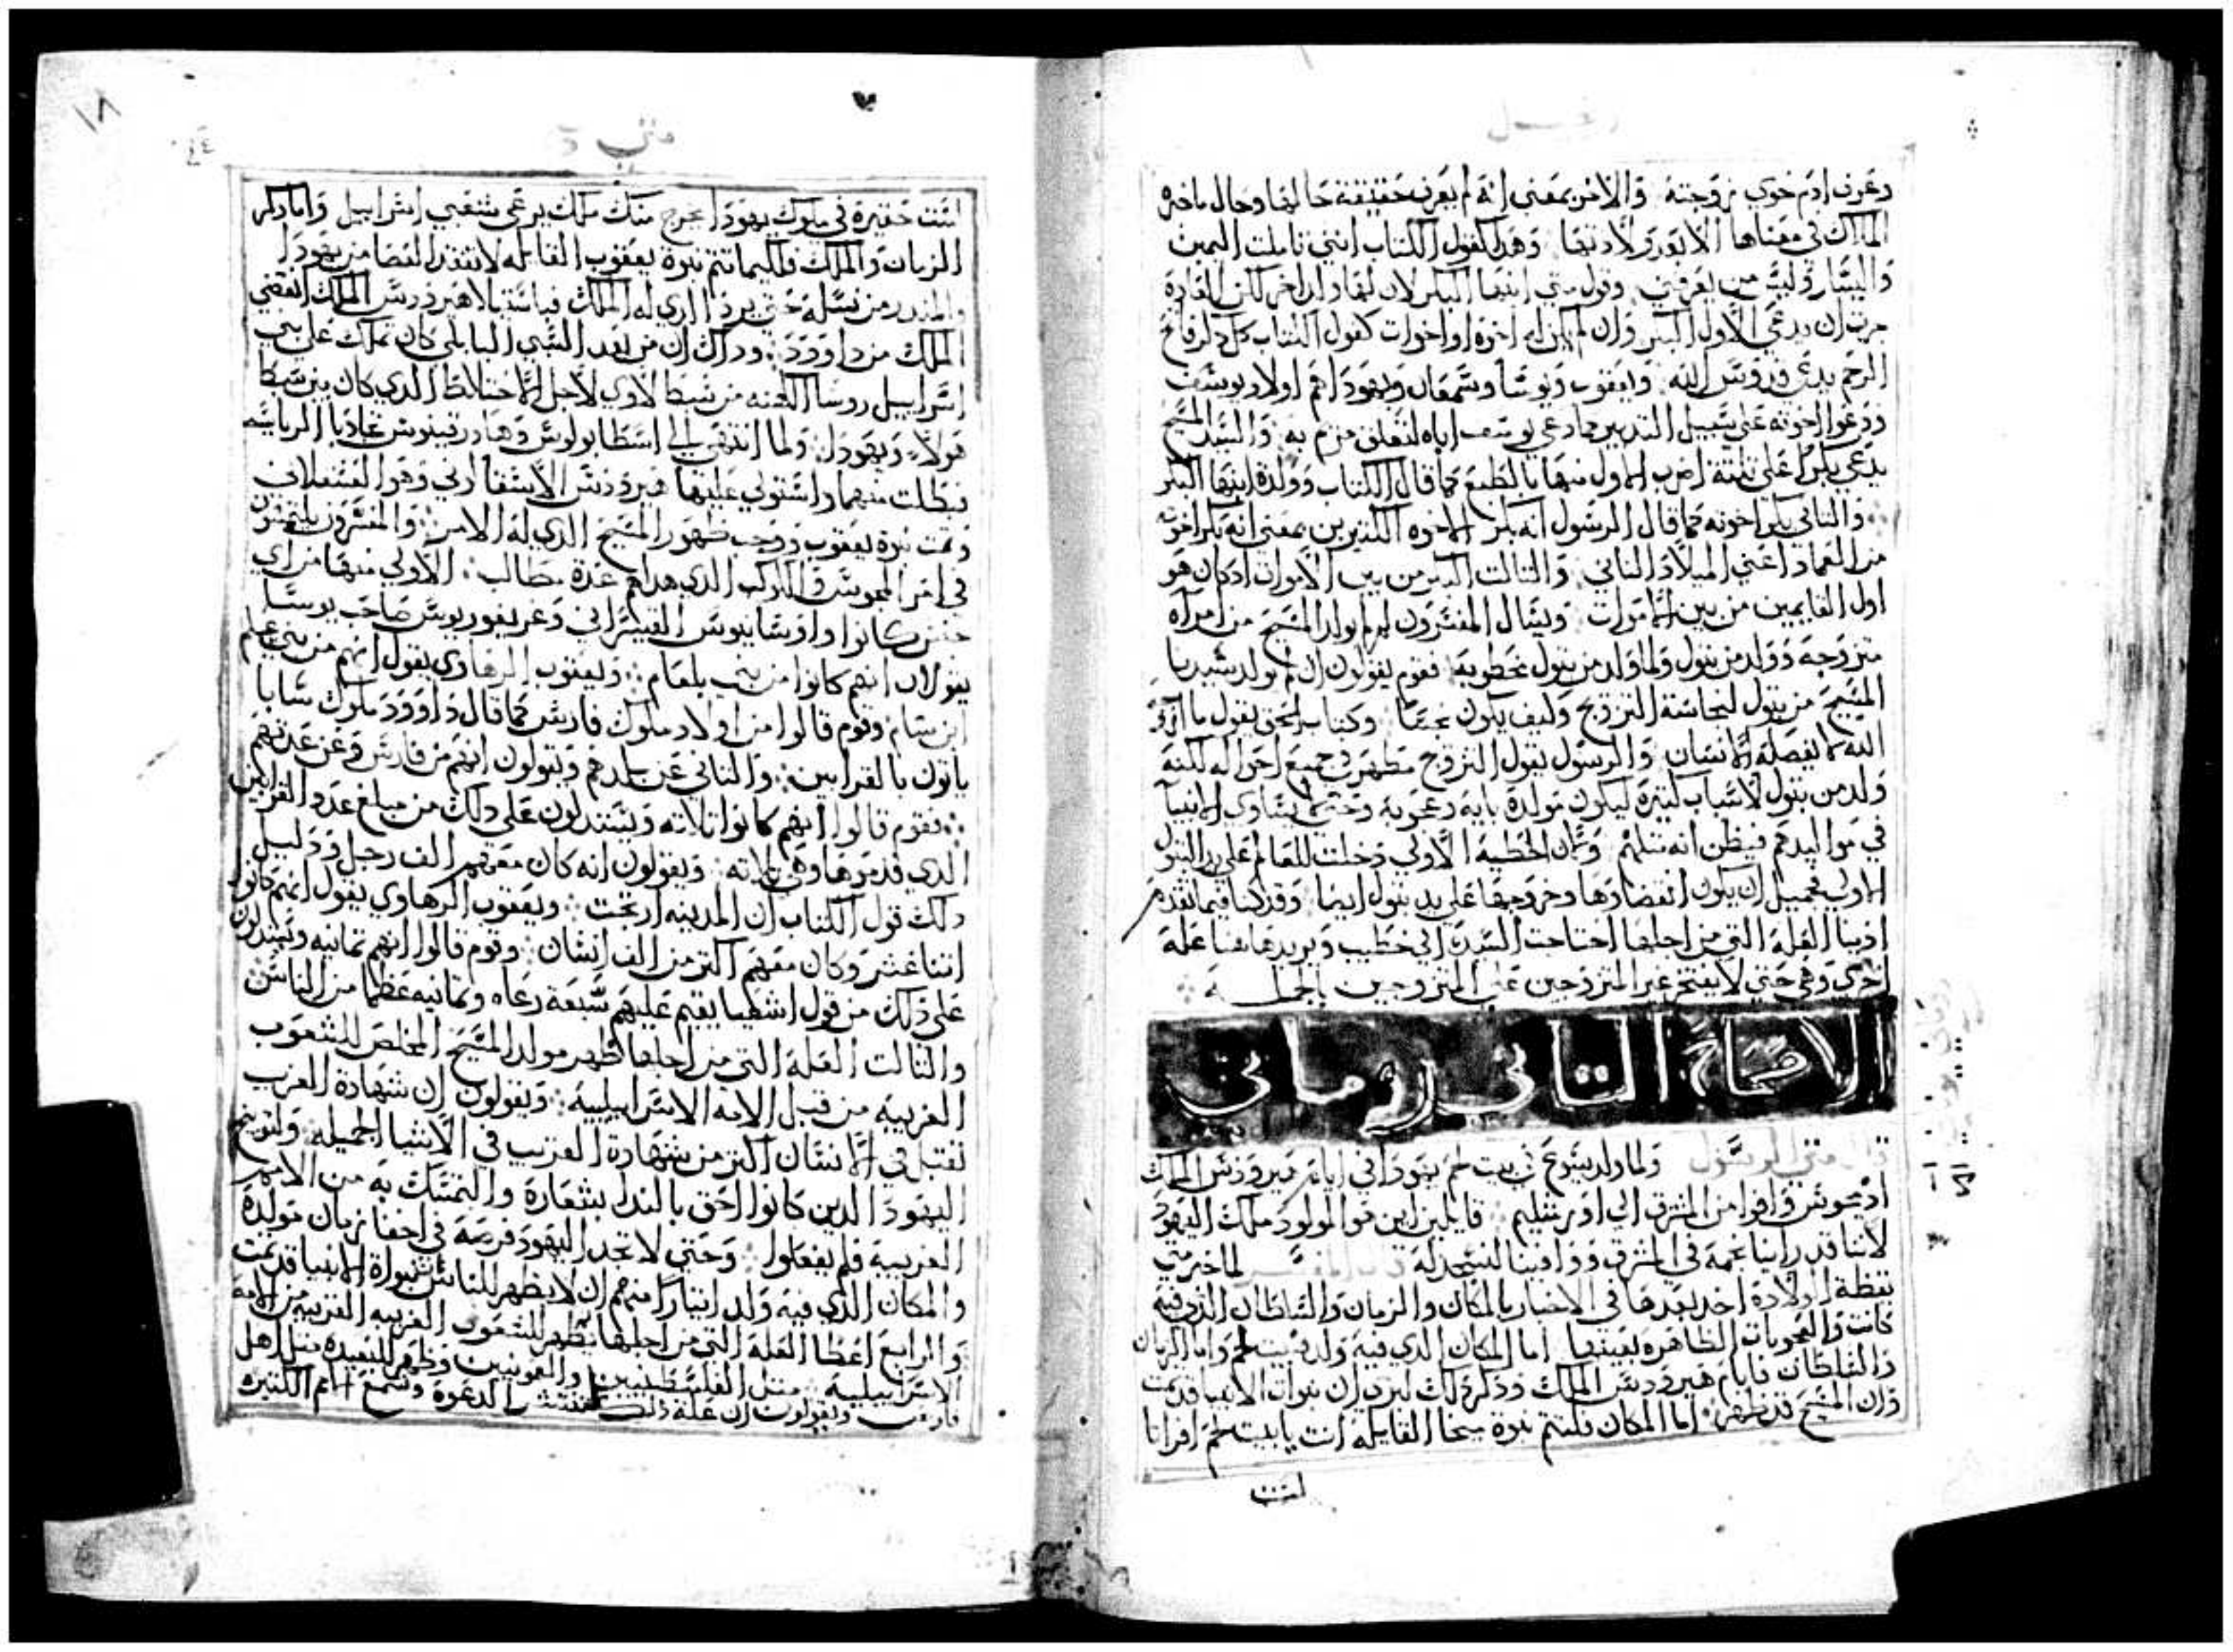 انجيل
وعرف ادم حوي زوجته والاخر بمعني انه لم يعرف حقيقة حالها وحال ماخبره
الملاك في معناها الا بعد ولادتها وهذا كقول الكتاب انني تاملت اليمين
واليسار وليس من يعرفني وقول متي ابنها البكر لان لها ولد اخر لكن العادة
جرت ان يدعي الاول البكر وان لم يكن له اخوة او اخوات كقول الكتاب كل ذكر فاتح
الرحم يدعي قدوس الله ويعقوب ويوسا وشمعان ويهودا هم اولاد يوسف
ودعوا اخوته علي سبيل التدبير كما دعي يوسف اباه لتعلق مريم به والسيد المسيح
يدعي بكرا علي تلتة اضرب الاول منها بالطبع كما قال الكتاب وولدة ابنها البكر
والتاني بكر اخوته كما قال الرسول انه بكر الاخوه الكتيرين بمعني انه بكر اخوته
من العماد اعني الميلاد التاني والتالت البكر من بين الاموات اذ كان هو
اول القايمين من بين الاموات ويسال المفسرون لم لم يولد المسيح من امراه
متزوجه وولد من بتول ولما ولد من بتول مخطوبه فقوم يقولون ان لم يولد سيدنا
المسيح من بتول لنجاسة التزويج وكيف يكون نجسا وكتاب الحق يقول ما ازوجه
الله لا يفصله الانسان والرسول يقول التزويج مطهر في جميع احواله لكنه
ولد من بتول لاسباب كتيرة ليكون مولده باية وعجوبة وحتي لا يتساوي الانبيا
في مواليدهم فيظن انه متلهم وكان الخطية الاولي دخلت للعالم علي يد البتول
الاولي فجميل ان يكون انقضاوها وخروجها علي يد بتول ايضا وقد كنا فيما تقدم
اذينا العلة التي من اجلها احتاجت السيدة الي خطيب ونريد هاهنا علة
اخري وهي حتي لا يفتخر غير المتزوجين علي المتزوجين بالجملة
الاصحاح التاني روماني
قال متي الرسول ولما ولد يسوع في بيت لحم يهودا في ايام هيرودس الملك
اذ مجوس وافوا من المشرق الي اورشليم قايلين اين هو المولود ملك اليهود
لاننا قد راينا نجمه في المشرق ووافينا لنسجد له قال المفسر لما خبر متي
بقصة الولادة اخذ بعدها في الاخبار بالمكان والزمان والسلطان الذي فيه
كانت والعجوبات الظاهره بعينها اما المكان الذي فيه ولد فبيت لحم واما الزمان
والسلطان فايام هيرودس الملك وذكر ذلك ليري ان نبوات الانبيا قد تمت
وان المسيح قد ظهر اما المكان فلتتم نبوة ميخا القايلة انت يا بيت لحم افراتا
لست
متي
١٨
لست حقيرة في ملوك يهودا يخرج منك ملك يرعي شعبي اسراييل واما ذكر
الزمان والملك فاليما تتم نبوة يعقوب القايله لا تفقد العصا من يهودا
والمنذر من نسله حتي يرد الذي له الملك فباستيلا هيرودس الملك انقضي
الملك من داوود وذاك ان من بعد السبي البابلي كان تملك علي بني
اسراييل روسا الكهنه من سبط لاوي لاجل الاختلاط الذي كان بين سبط
هولاء ويهودا ولما انتهي الي ارسطابولوس وهاورقينوس عادبا الرياسه
فبطلت منهما واستولي عليها هيرودس الاسقلاوني وهو العسقلاني
وتمت نبوة يعقوب ووجب ظهور المسيح الذي له الامر والمفسرون يلتمسون
في امر المجوس والكوكب الذي هداهم عدة مطالب الاولي منها من اي
جنس كانوا واوسابيوس القيسراني وغريغوريوس صاحب نوسا
يقولان انهم كانوا من بني بلعام ويعقوب الرهاوي يقول انهم من بني عيلم
ابن سام وقوم قالوا من اولاد ملوك فارس كما قال داوود ملوك سابا
ياتون بالقرابين والتاني عن بلدهم ويقولون انهم من فارس وعن عدتهم
فقوم قالوا انهم كانوا تلاته ويستدلون علي ذلك من مبلغ عدد القرابين
الذي قدموها وهي تلاته ويقولون انه كان معهم الف رجل ودليل
ذلك قول الكتاب ان المدينه ارتجت ويعقوب الرهاوي يقول انهم كانوا
اتنا عشر وكان معهم اكتر من الف انسان وقوم قالوا انهم تمانيه ويستدلون
علي ذلك من قول اشعيا يقيم عليهم سبعة رعاه وتمانيه عظما من الناس
والتالت العلة التي من اجلها ظهر مولد المسيح المخلص للشعوب
الغريبه من قبل الامه الاسراييلية ويقولون ان شهادة الغريب
تقبل في الانسان اكتر من شهادة القريب في الاشيا الجميله ولتوبيخ
اليهود الذين كانوا احق بالندل بشعاره والتمسك به من الامم
الغريبة فلم يفعلوا وحتي لا تجد اليهود فرصة في اخفا زمان مولده
والمكان الذي فيه ولد ايتارا منهم ان لا يظهر للناس بنبواة الانبيا قد تمت
والرابع اعطا العلة التي من اجلها ظهر للشعوب الغريبه القريبه من الامة
الاسراييلية متل الفلسطينيين والعونيين وظهر للبعيده متل اهل
فارس ويقولون ان علة ذلك لتنتشر الدعوة وتسمع الامم الكتيره